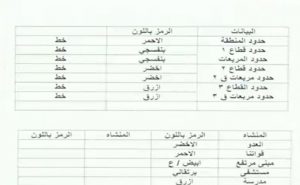 البيانات الرمز بالتلون
حدود المنطقة الاحمر خط
حدود قطاع ١ بنفسجي خط
حدود المربعات بنفسجي خط
حدود قطاع ٢ اخضر خط
حدود مربعات ق ٢ اخضر خط
حدود القطاع ٣ ازرق خط
حدود مربعات ق ٣ ازرق خط
المنشاه الرمز بالتلون المنشاه الرمز بالتلون
العدو الاخضر
قواتنا الاحمر
مبنى مرتفع ابيض / ع
مستشفى برتقالي
مدرسة ازرق